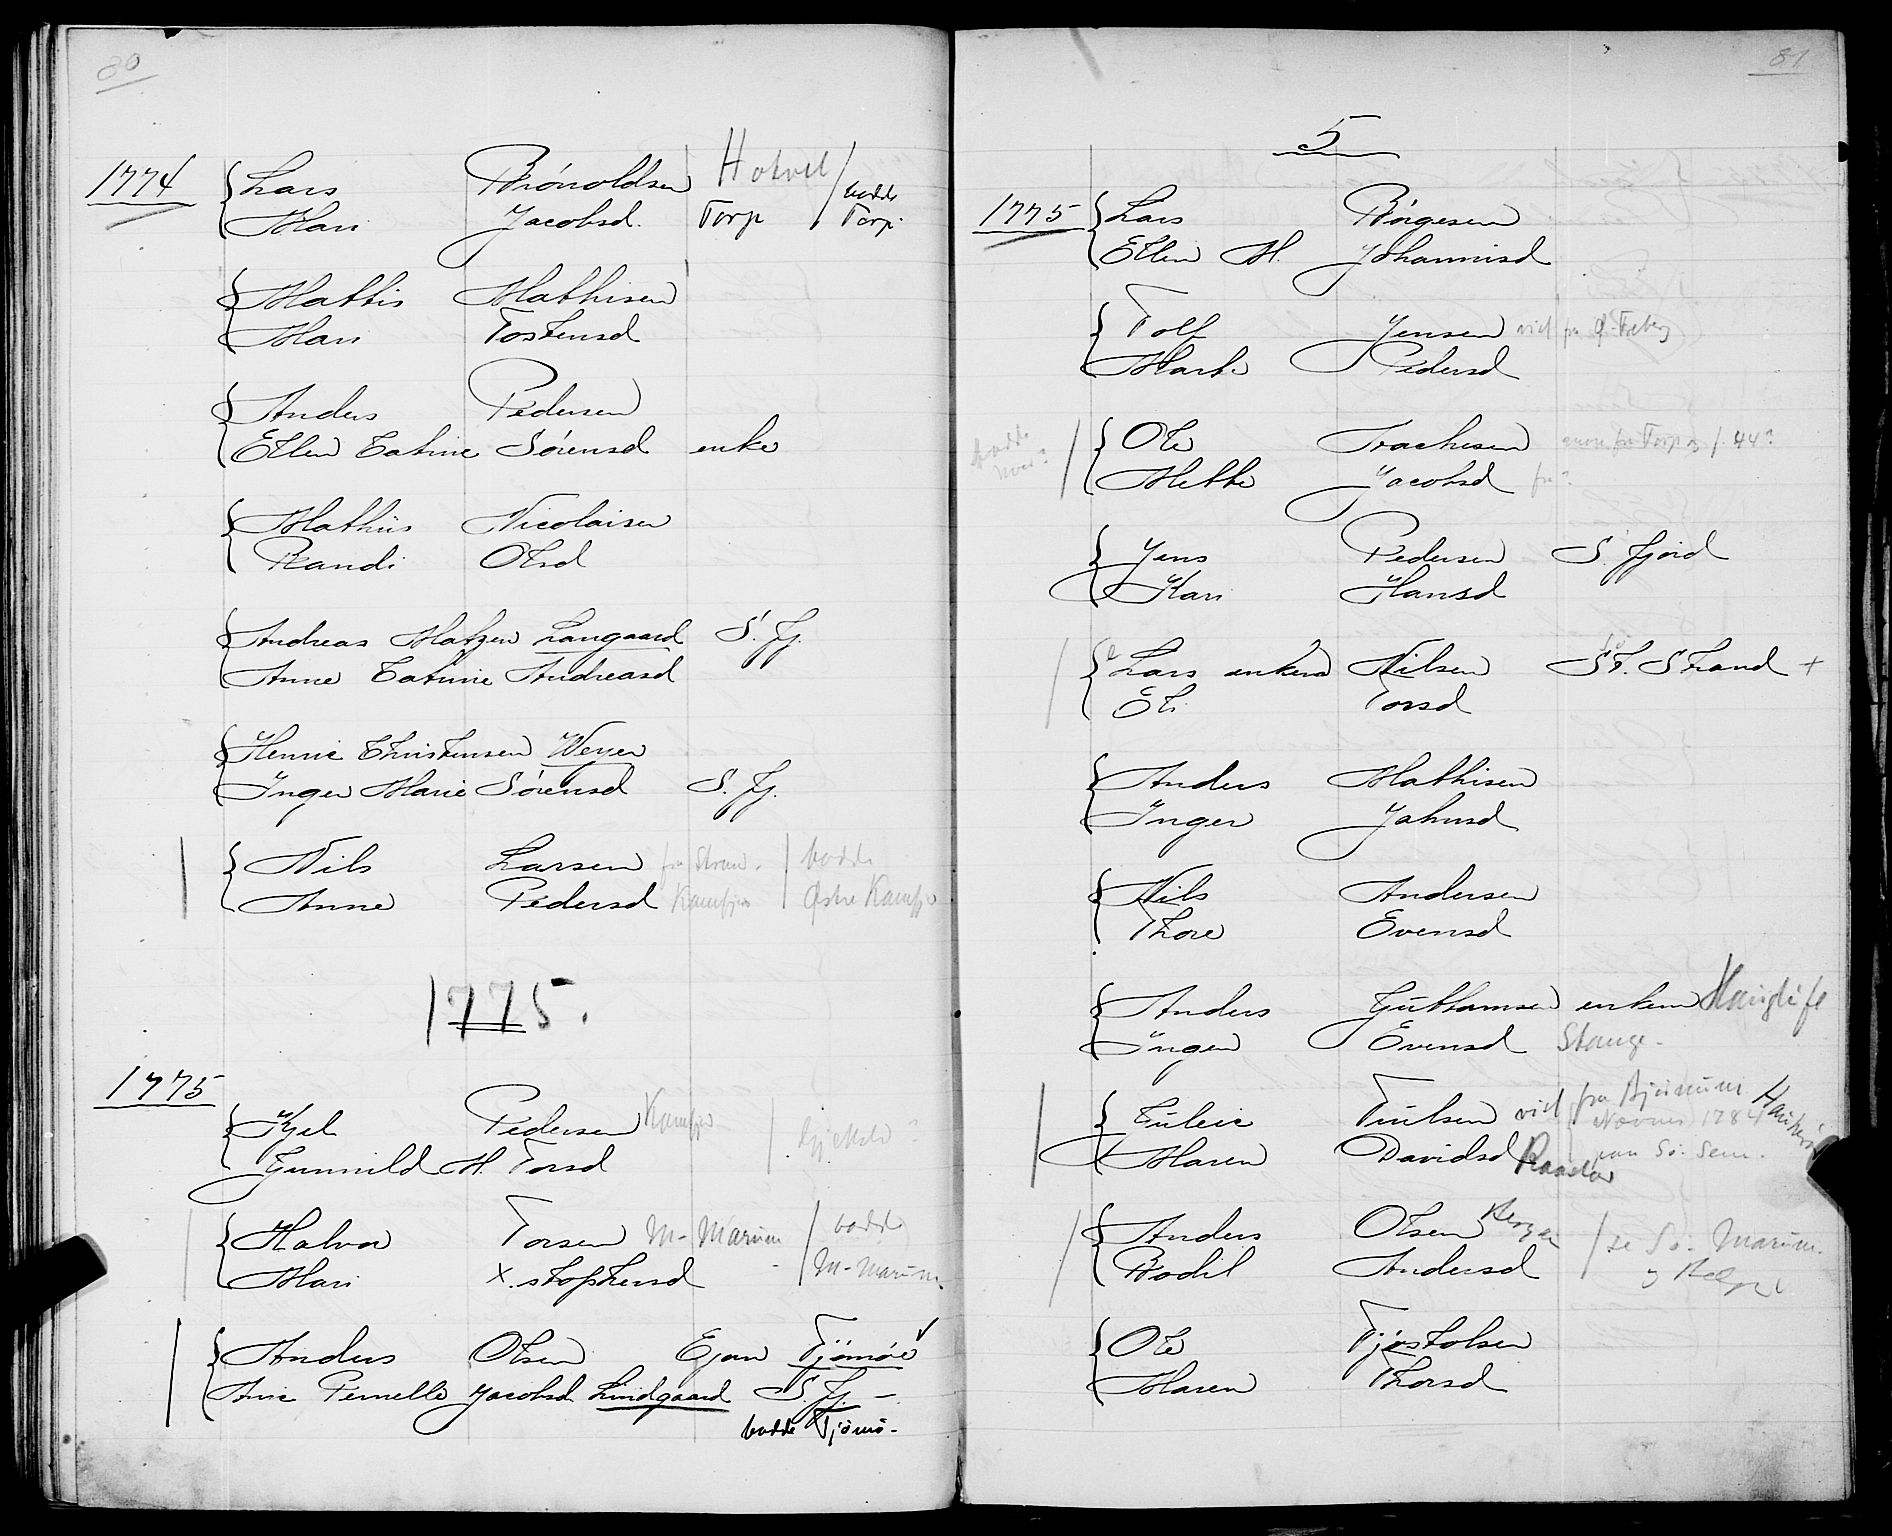 80
1774 Lars Brönoldsen Hotvet / bodde
Mari Jacobsd. Torp / Torp.
Mathis Mathisen
Mari Tostensd
Anders Pedersen
Ellen Catrine Sörensd enke
Mathiis Nicolaisen
Randi Olsd
Andreas Matzen Langaard S. Fj.
Anne Catrine Andreasd
Henric Christensen Weyer
Inger Marie Sörensd S. Fj.
Nils Larsen fra / bodde
Anne Pedersd Kamfjor Østre Kamfjo
1775.
1775
Kjel Pedersen Kamfjo
Gunnild M. Torsd
Halvor Torsen M- Marum / bodde
Mari X.stophersd M- Marum
Anders Olsen Ejan Tjömöe
Ane Pernelle Jacobsd Lindgaard S. Fj. -
bodde Tjömö-
81
5
1775 Lars Börgesen
Ellen M. Johannisd
Tolf Jensen vist fra
Marte Pedersd
bodde Ole Trachesen fra Torp f. 44?
hvor? Mette Jacobsd fra?
Jens Pedersen S. Fjord
Kari Hansd
Lars enkem Nilsen St. Strand +
Eli Torsd
Anders Mathisen
Inger Jahnsd
Nils Andersen
Thore Evensd
Anders Guthamsen enkem
Inger Evensd Stange-
Tullsen vist fra Bjernum
nevnes 1784
Maren Davidsd Raastad Sö. Sem.
Anders Olsen Berger / se Sö. Marum.
Bodil Andersd
Ole Tjöstolsen
Maren Thorsd